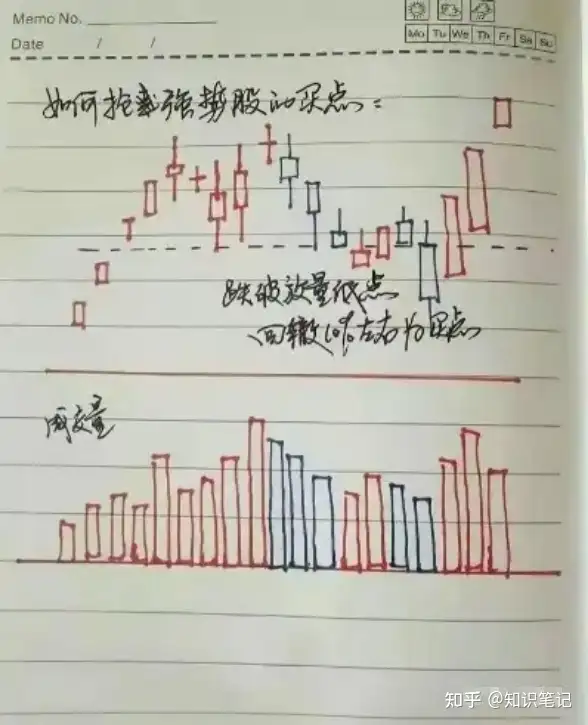 Memo No.
Mo Tu We Th Fr Sa Su
Date / /
如何抢强势股的买点：
跌破放量低点
回撤10%左右为买点
成交量
知乎 @知识笔记